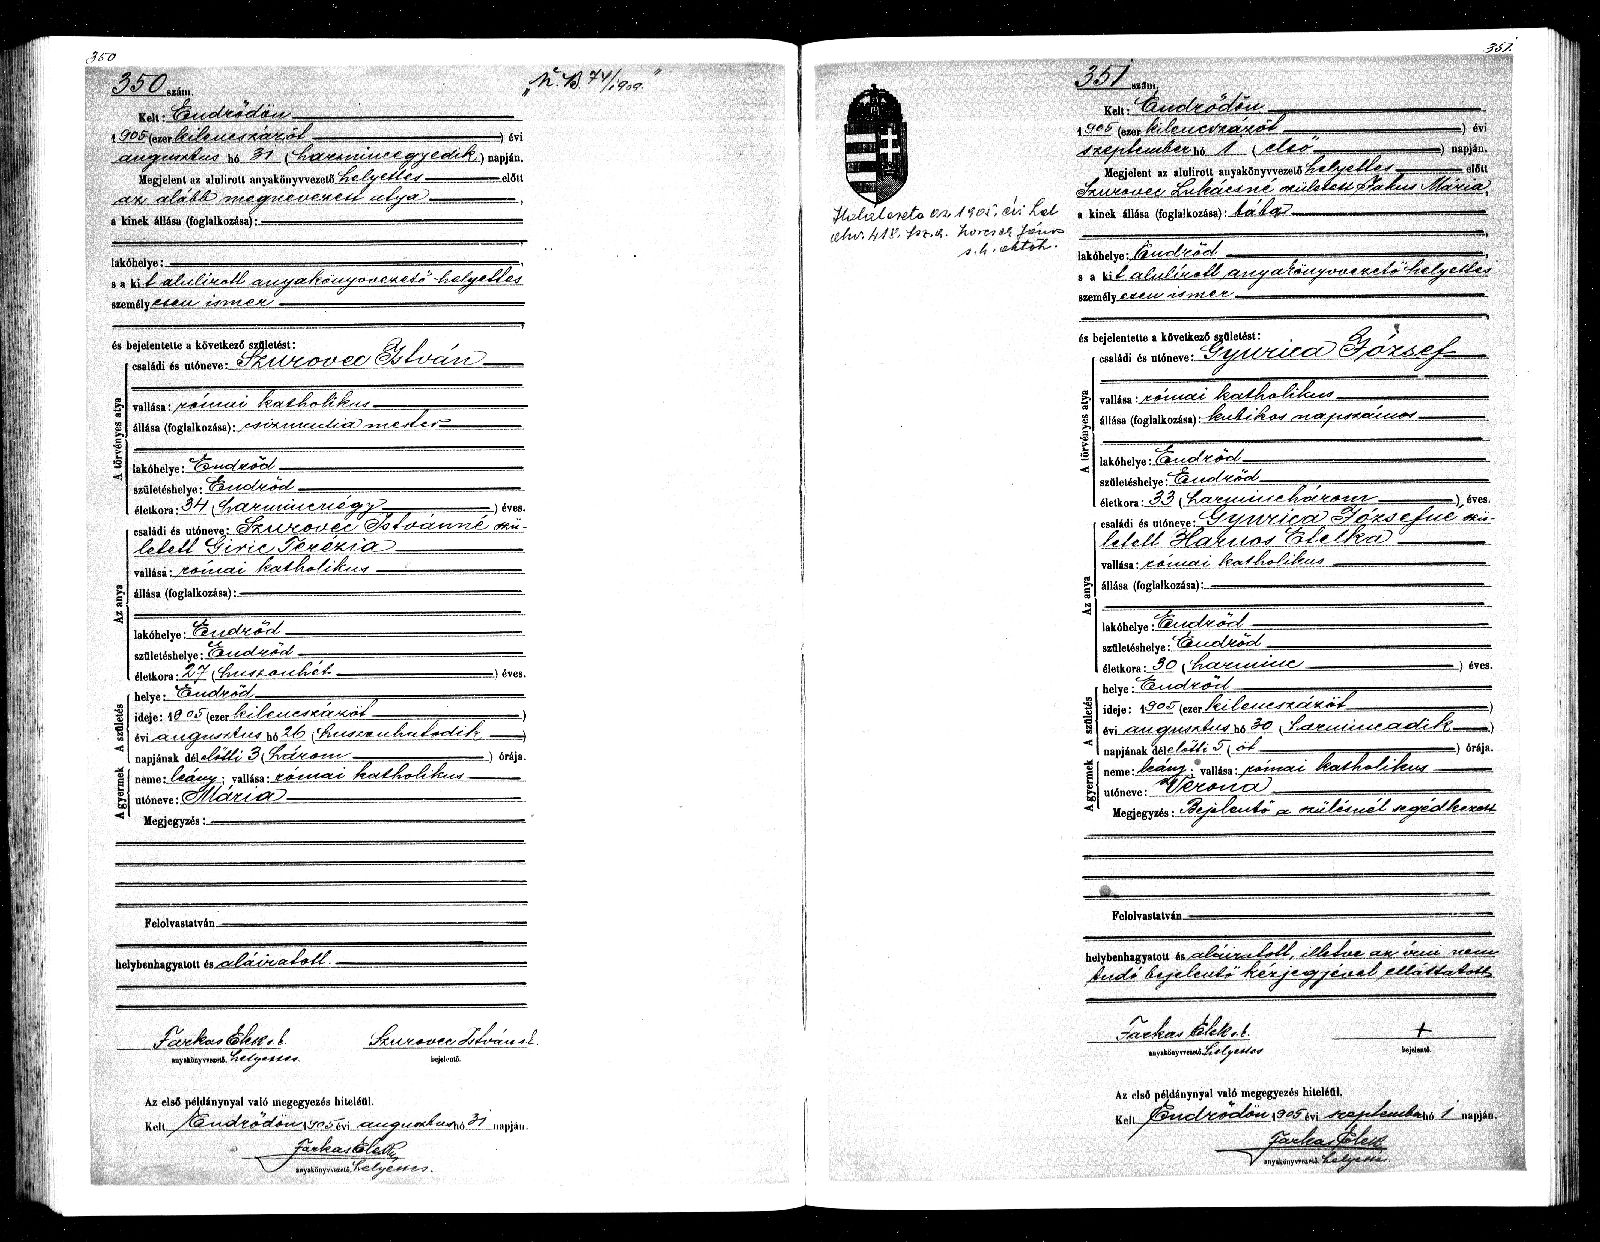 350
350 szám.
"N. B 74/1909."
Kelt: Endrődön
1905 (ezer kilenczszázöt) évi
augusztus hó 31 (harminczegyedik) napján.
Megjelent az alulirott anyakönyvvezető helyettes előtt
az alább megnevezett atya,
a kinek állása (foglalkozása):
lakóhelye:
s a kit alulirott anyakönyvvezető helyettes
személyesen ismer
és bejelentette a következő születést:
A törvényes atya
családi és utóneve: Szurovecz István
vallása: római katholikus
állása (foglalkozása): csizmadia mester
lakóhelye: Endrőd
születéshelye: Endrőd
életkora: 34 (harmincnégy) éves.
Az anya
családi és utóneve: Szurovec Istvánné szü-
letett Giric Terézia
vallása: római katholikus
állása (foglalkozása):
lakóhelye: Endrőd
születéshelye: Endrőd
életkora: 27 (huszonhét) éves.
A születés
helye: Endrőd
ideje: 1905 (ezer kilencszázöt)
évi augusztus hó 26 (huszonhatodik)
napjának délelőtti 3 (három) órája.
A gyermek
neme: leány; vallása: római katholikus
utóneve: Mária
Megjegyzés:
Felolvastatván
helybenhagyatott és aláiratott.
Farkas Elek s.k.
Szurovec István s.k.
anyakönyvvezető helyettes.
bejelentő.
Az első példánynyal való megegyezés hiteléül.
Kelt Endrődön 1905 évi augusztus hó 31 napján.
Farkas Elek
anyakönyvvezető helyettes.
351.
351 szám.
Kelt: Endrődön
1905 (ezer kilencszázöt) évi
szeptember hó 1 (első) napján.
Megjelent az alulirott anyakönyvvezető helyettes előtt
Szurovec Lukácsné született Fakus Mária,
a kinek állása (foglalkozása): bába
lakóhelye: Endrőd
s a kit alulirott anyakönyvvezető helyettes
személyesen ismer
1905. évi hal.
akv. 418. fsz. a. János
s. k.
és bejelentette a következő születést:
A törvényes atya
családi és utóneve: Gyurica József
vallása: római katholikus
állása (foglalkozása): kubikos napszámos
lakóhelye: Endrőd
születéshelye: Endrőd
életkora: 33 (harminchárom) éves.
Az anya
családi és utóneve: Gyurica Józsefné szü-
letett Harnos Etelka
vallása: római katholikus
állása (foglalkozása):
lakóhelye: Endrőd
születéshelye: Endrőd
életkora: 30 (harminc) éves.
A születés
helye: Endrőd
ideje: 1905 (ezer kilencszázöt)
évi augusztus hó 30 (harmincadik)
napjának délelőtti 5 (öt) órája.
A gyermek
neme: leány; vallása: római katholikus
utóneve: Verona
Megjegyzés: Bejelentő a szülésnél segédkezett
Felolvastatván
helybenhagyatott és aláiratott, illetve az irni nem
tudó bejelentő kézjegyével elláttatott
Farkas Elek s.k.
+
anyakönyvvezető helyettes
bejelentő.
Az első példánynyal való megegyezés hiteléül.
Kelt Endrődön 1905 évi szeptember hó 1 napján.
Farkas Elek
anyakönyvvezető helyettes.